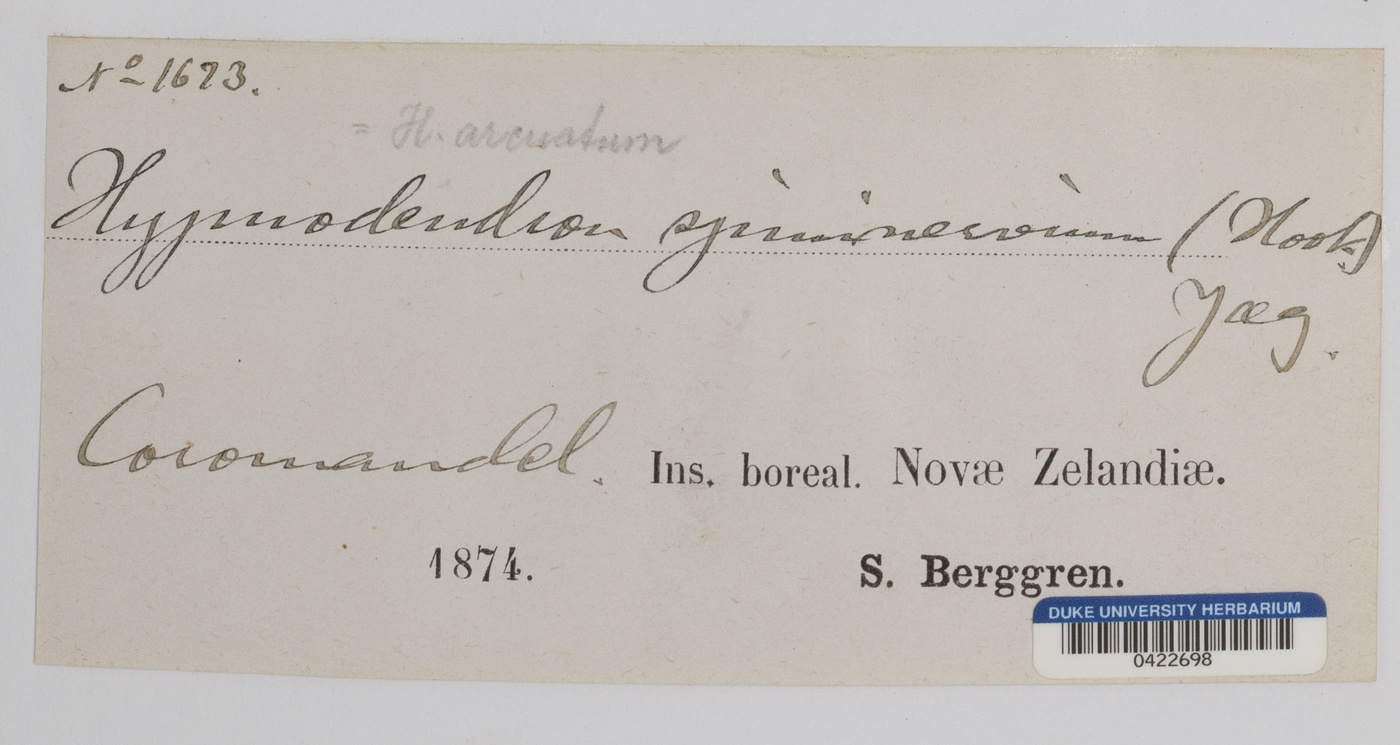 Nº 1673.
= H. arcuatum
Hypnodendron spininervium (Hook.)
Jæg.
Coromandel. Ins. boreal. Novæ Zelandiæ.
1874. S. Berggren.
DUKE UNIVERSITY HERBARIUM
0422698